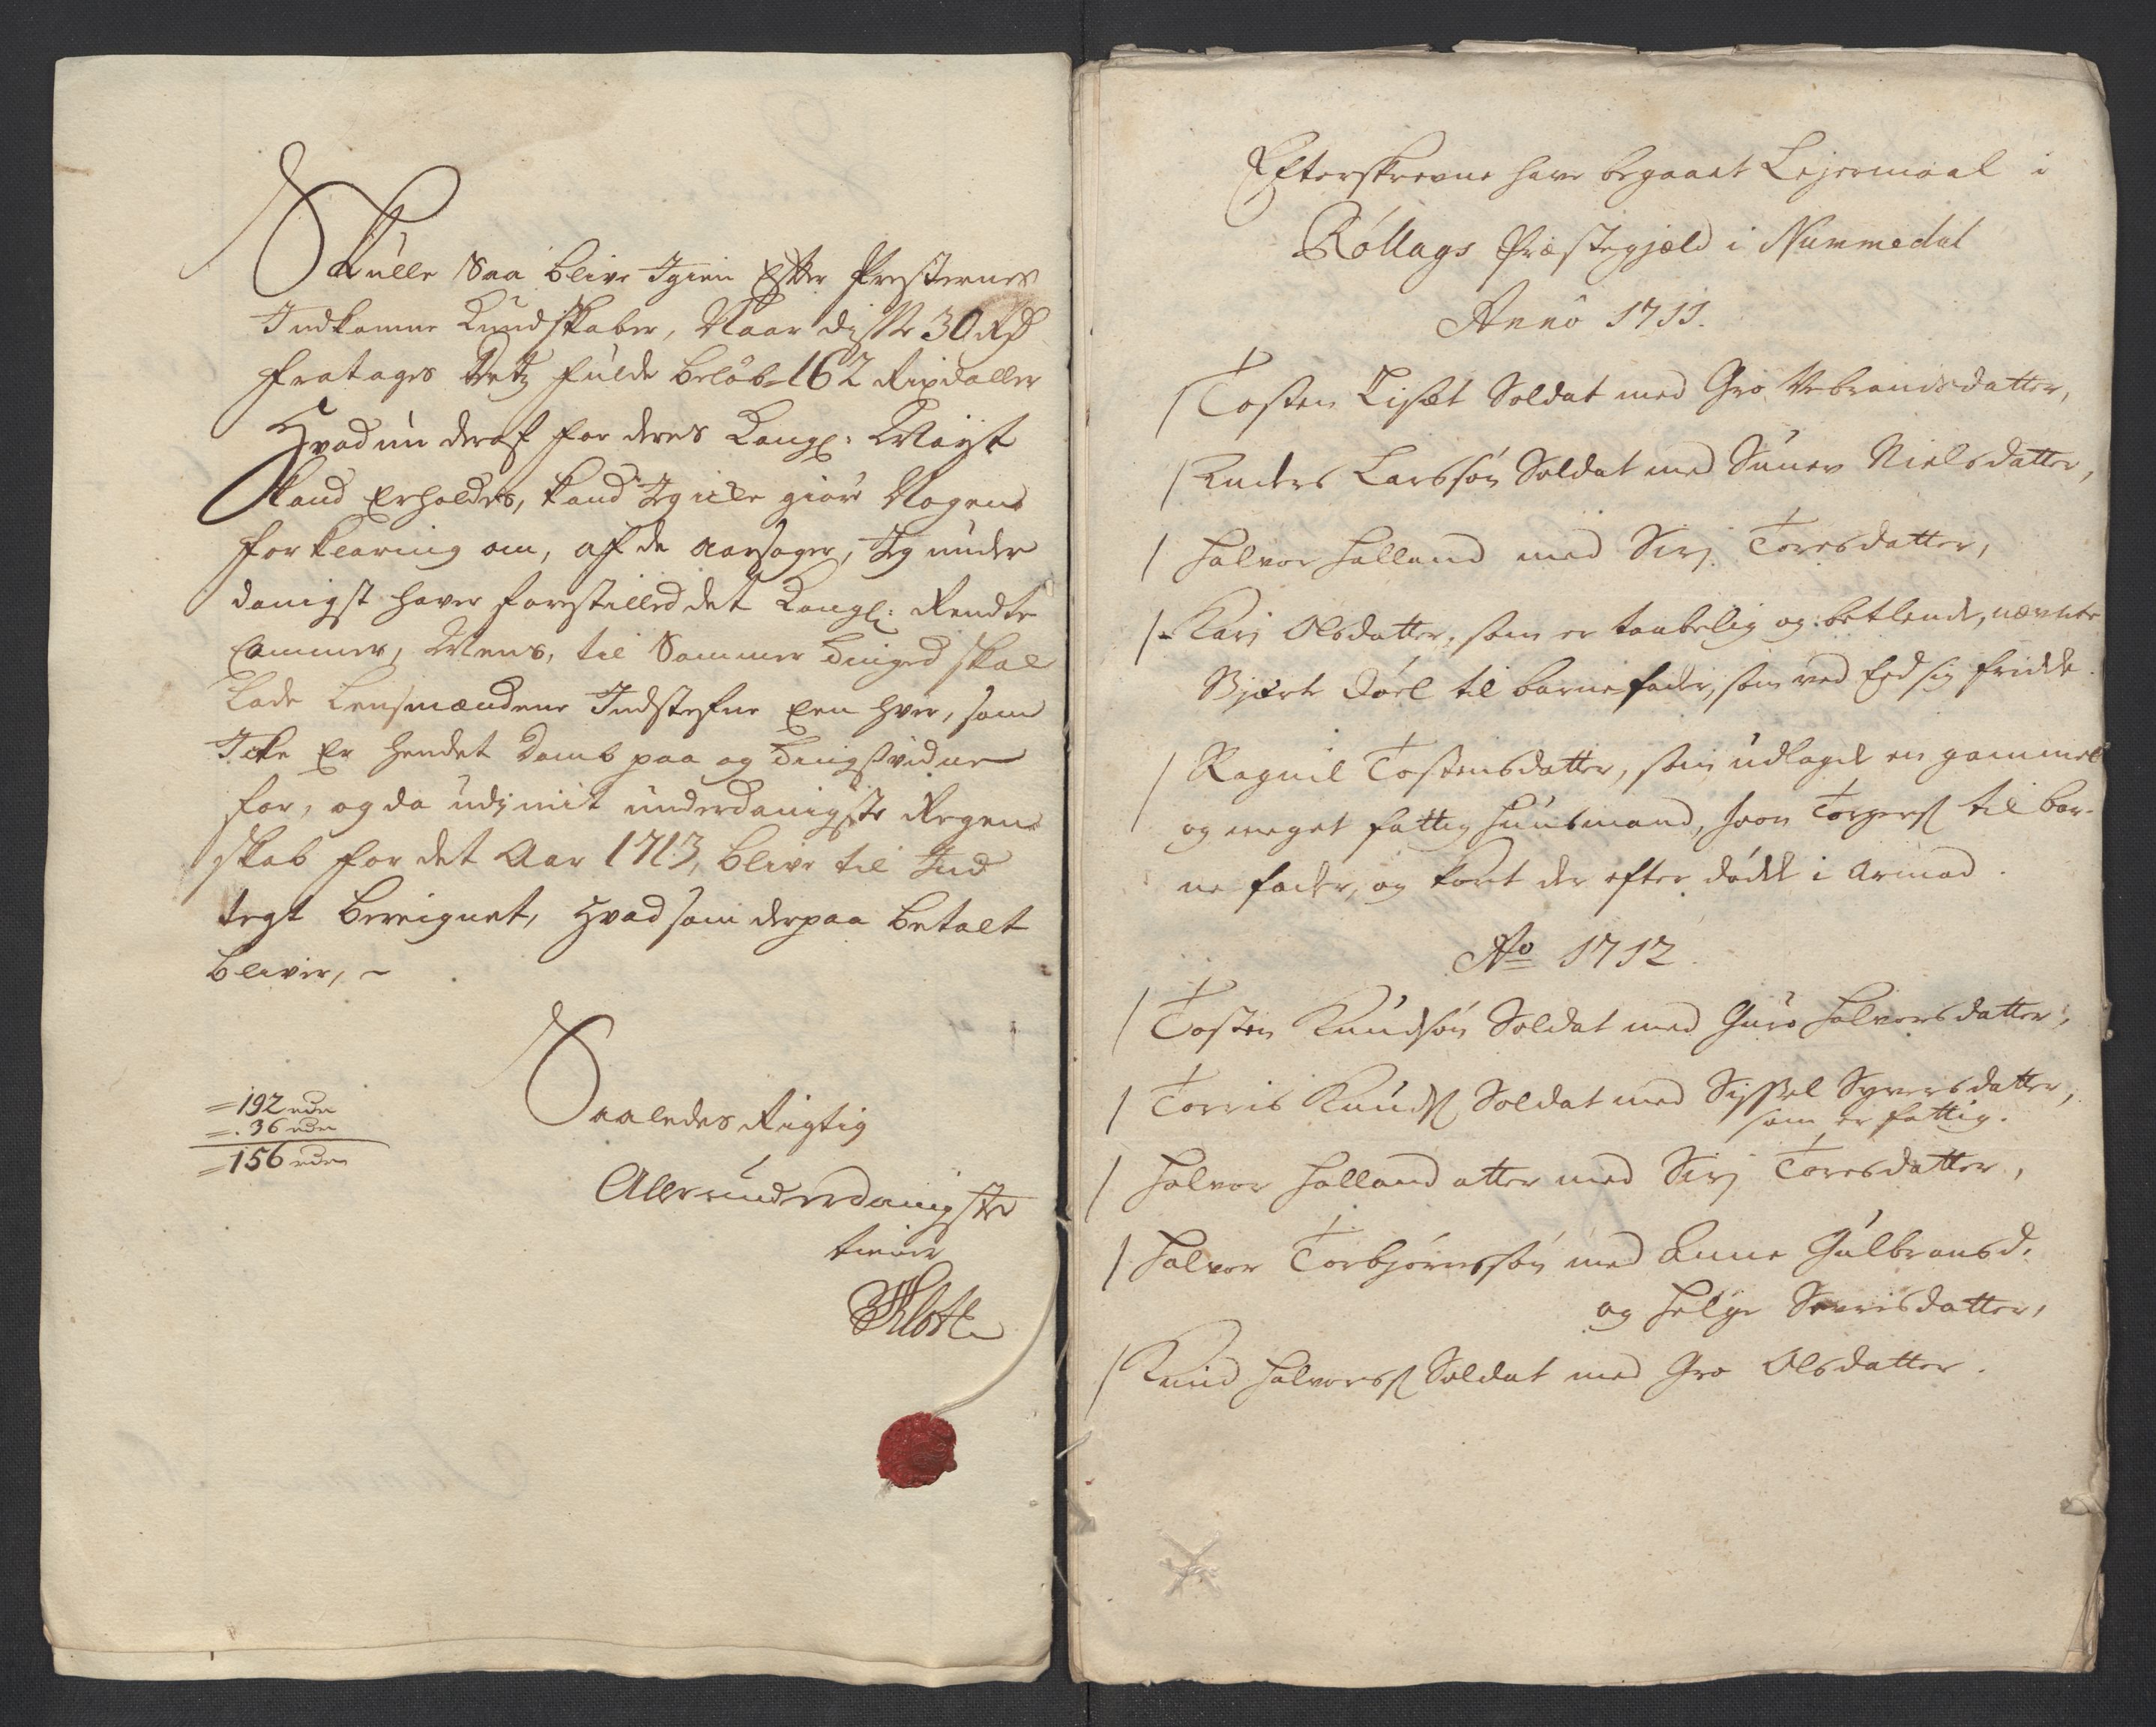 Skulle Saa blive Igien Efter Presternes
Indkomne Kundskaber, Naar disse 30 Rd
fratages Detz fulde beløb - 162 Rixdaller
Hvad nu deraf for deres Kongl: Mayst
kand Erholdes, kand Jeg icke giøre Nogen
forklaring om, af de aarsager, Jeg under
danigst haver forestilled det Kongl: Rendte
Cammer, Mens, til Sommer Tinged skal
lade Lensmændene Indstefne Een hver, som
Icke Er hendet Domb paa og Tingsvidne
for, og da udj mit underdanigste Regen
skab for det Aar 1713, blive til Ind
tegt bereignet, Hvad som derpaa betalt
bliver, -
= 192 rdr
= . 36 rdr
= 156 rdr
Saaledes Rigtig
Allerunderdanigste
tiener
Klotte
Efterskrevne have begaaet Lejermaal i
Rollags Præstegjæld i Nummedal
Anno 1711.
/ Tosten Liset Soldat med Gro Vebrandsdatter,
/ Anders Larssøn Soldat med Sunev Nielsdatter,
/ Halvor Halland med Sirj Toresdatter,
/ Karj Olsdatter, som er taabelig og betlende, nævnte
Bjørte Døel til barnefader, som ved Eed sig fridde.
/ Ragnil Tostensdatter, som udlagde en gammel
og meget fattig Huusmand, Joen Torgers til bar-
ne fader, og kort der efter døde i Armod.
Ao 1712.
/ Tosten Knudsøn Soldat med Guro Halvorsdatter,
/ Torris Knuds Soldat med Sissel Syversdatter,
som er fattig.
/ Halvor Halland atter med Sirj Toresdatter,
/ Halvor Torbjørnssøn med Anne Gulbransd.
og Helge Sevrisdatter,
/ Knud Halvorss Soldat med Gro Olsdatter.